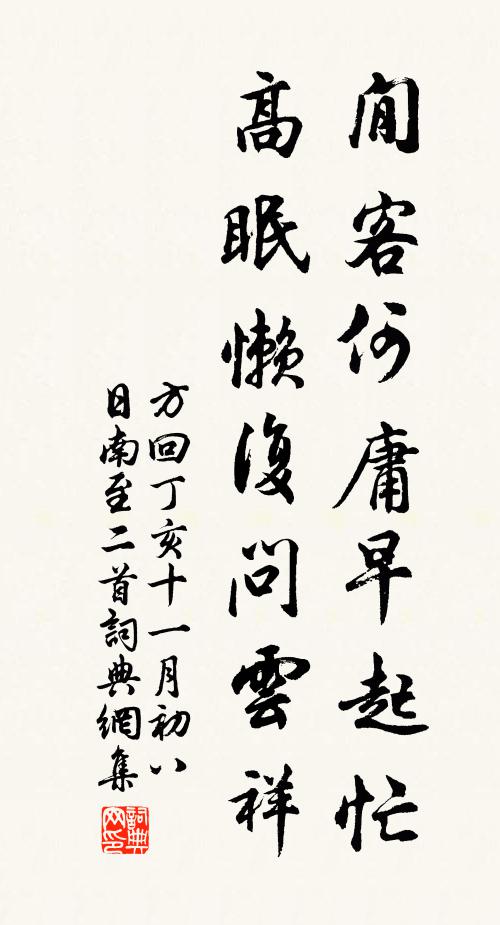 閒客何庸早起忙
高眠懶復問雲祥
方回丁亥十一月初八
日南至二首詞典網集
詞典网印